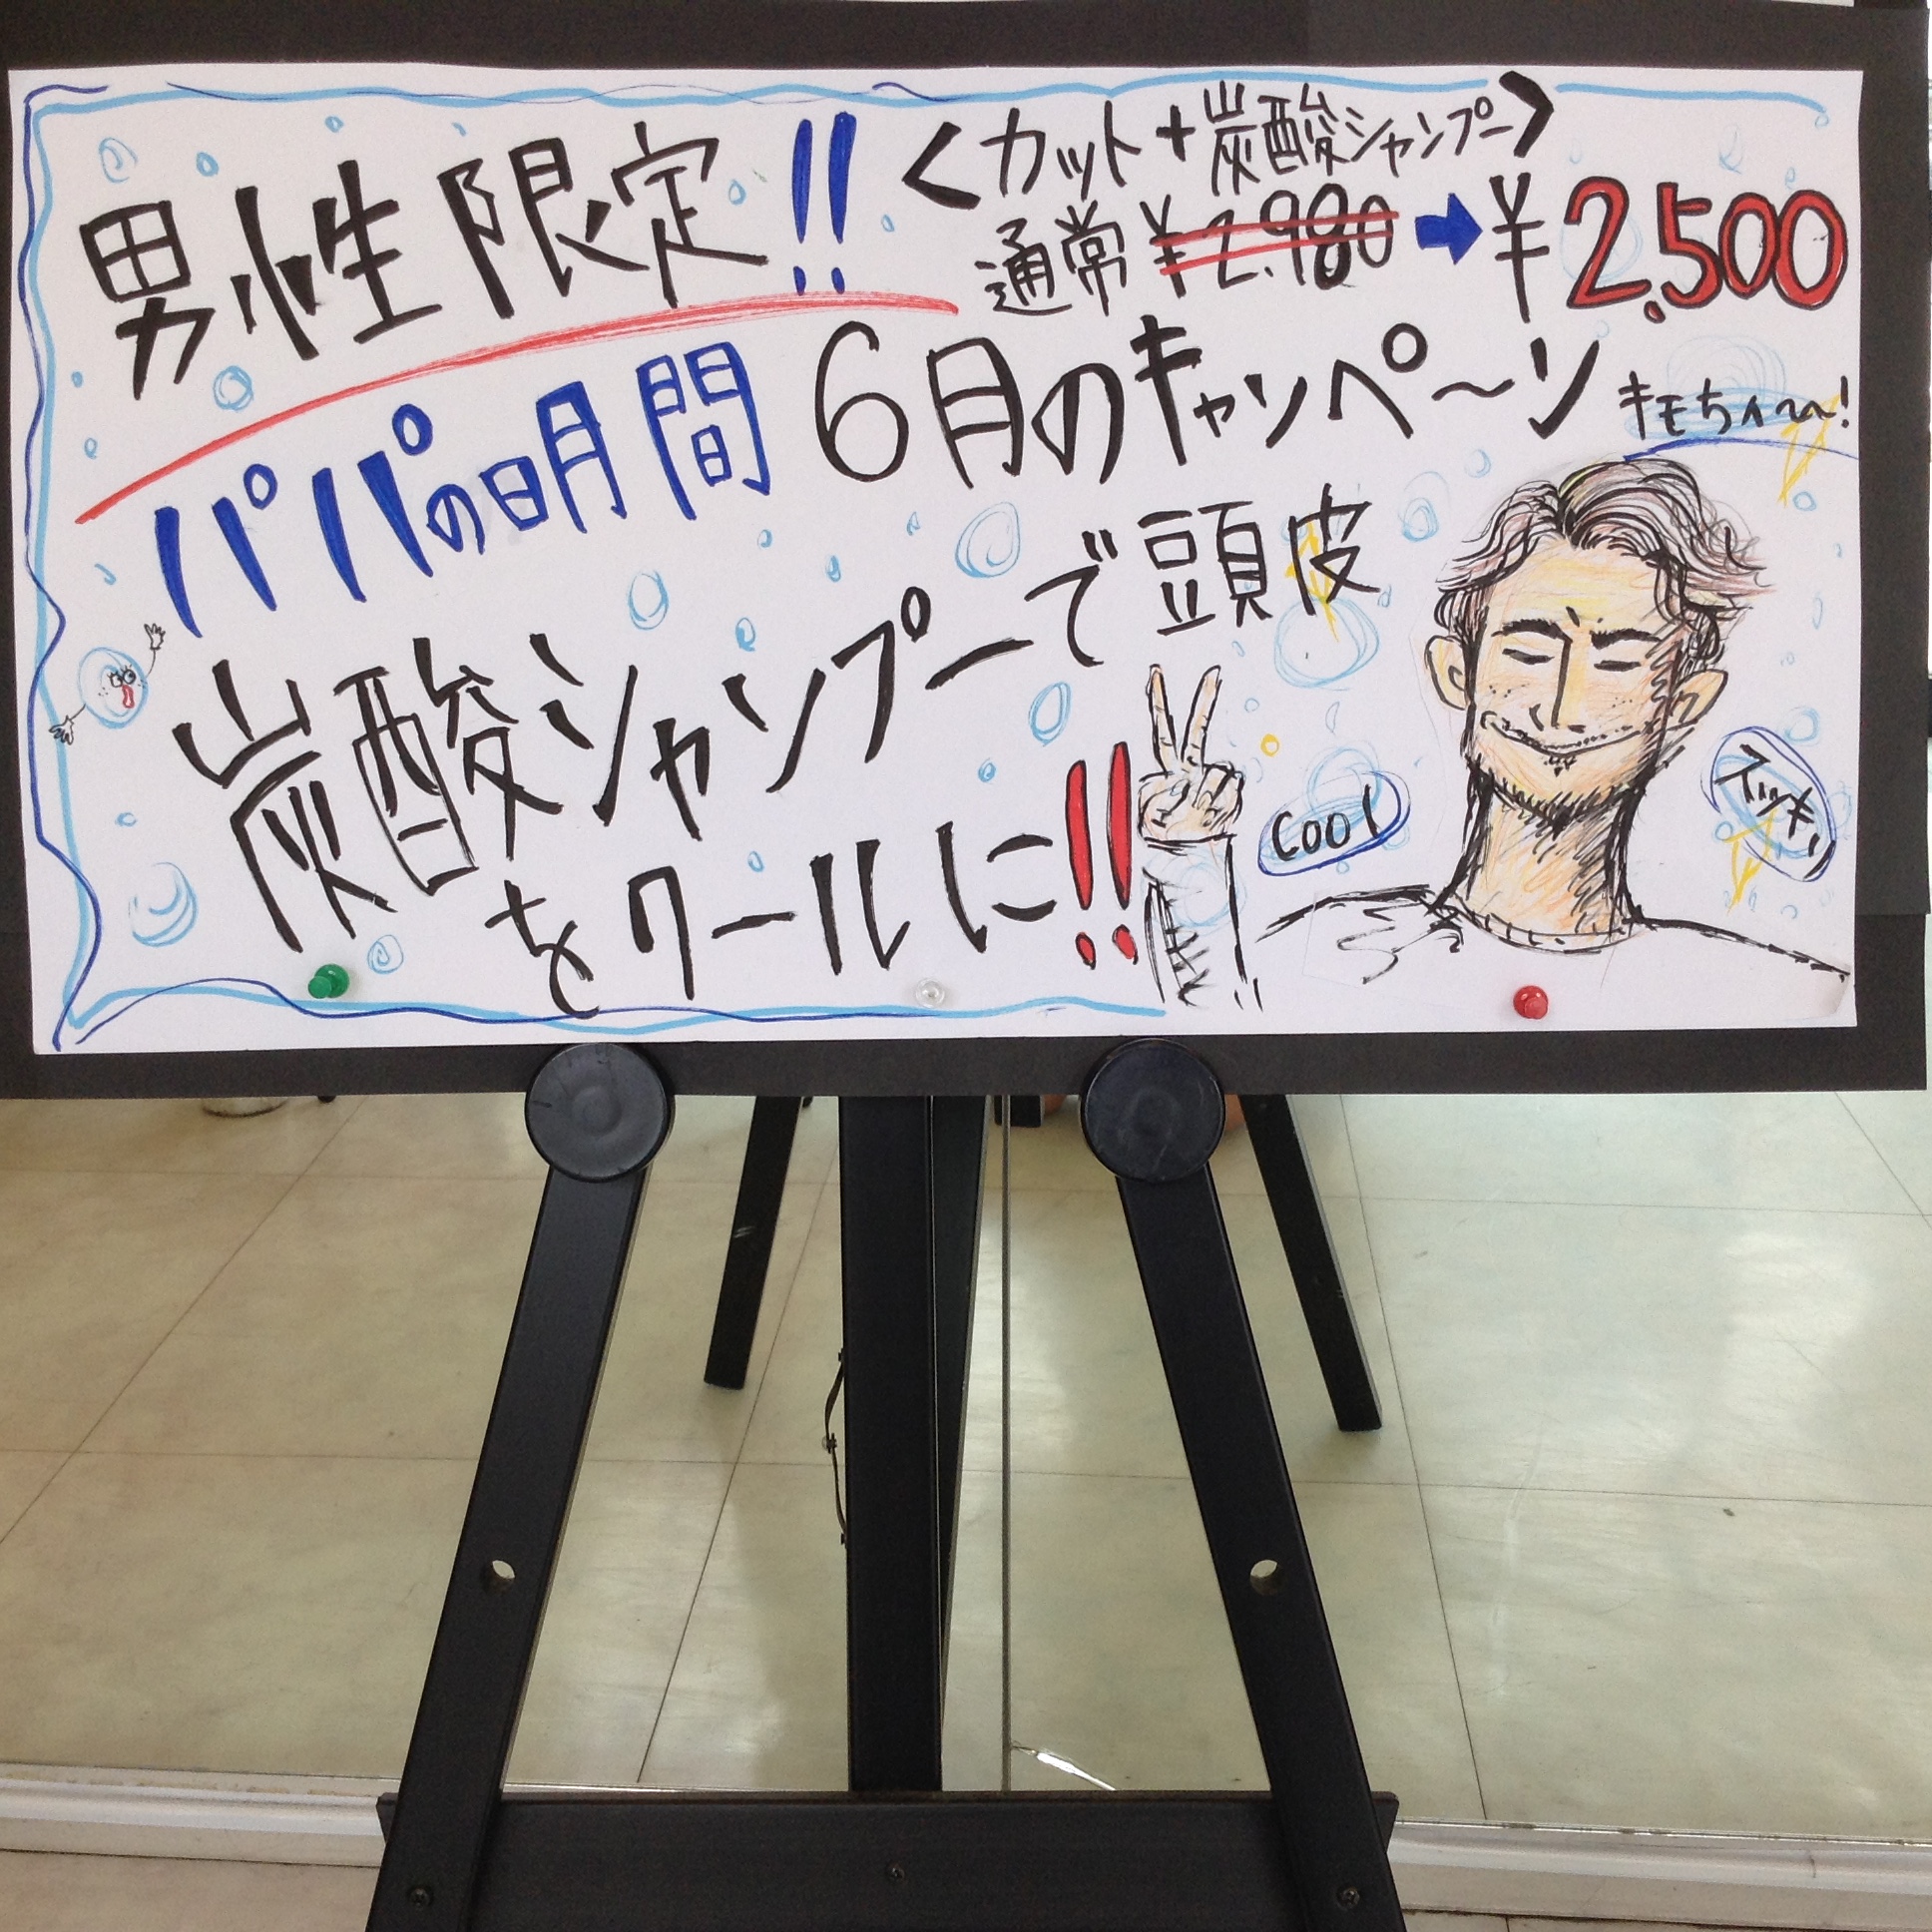 男性限定!!
<カット+炭酸シャンプー>
通常¥2,980➡¥2,500
パパの日月間 6月のキャンペ〜ン
キモちイ〜〜!
炭酸シャンプーで頭皮
をクールに!!
Cool
スッキリ